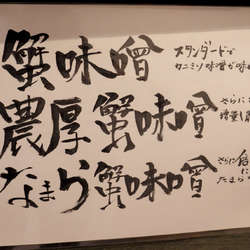 蟹味噌
スタンダードで
カニミソ味噌が味わ
濃厚蟹味噌
さらに
増量し濃
なまら蟹味噌
さらに